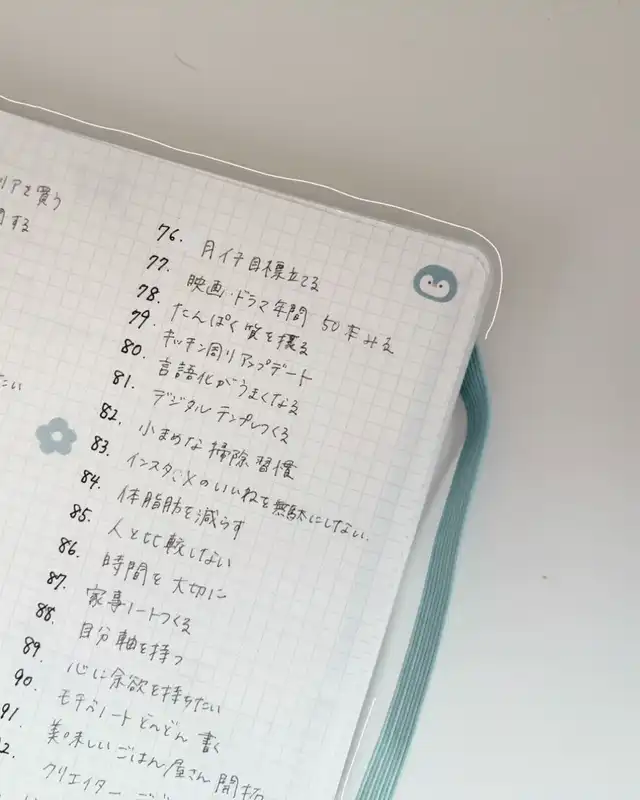 リアを買う
する
たい
76. 月イチ目標立てる
77. 映画・ドラマ年間 50本みる
78. たんぱく質を摂る
79. キッチン周りアップデート
80. 言語化がうまくなる
81. デジタルテンプレつくる
82. 小まめな掃除習慣
83. インスタ♡Xのいいねを無駄にしない
84. 体脂肪を減らす
85. 人と比較しない
86. 時間を大切に
87. 家事ノートつくる
88. 自分軸を持つ
89. 心に余欲を持ちたい
90. モチベノートどんどん書く
91. 美味しいごはん屋さん開拓
2. クリエイター